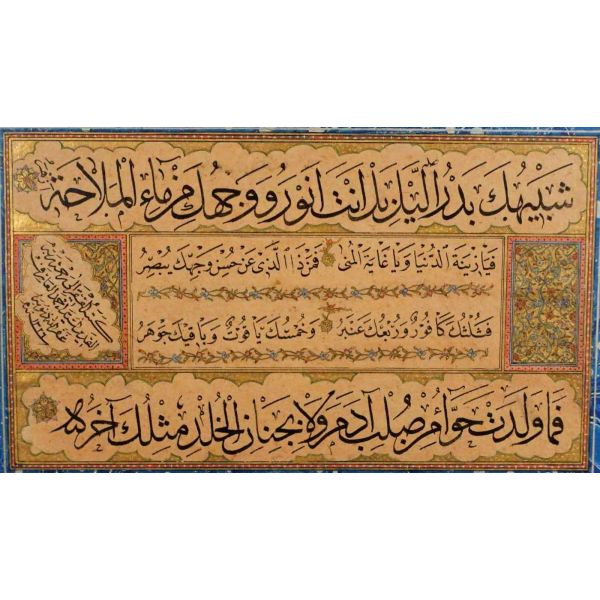 شبيهك بدر الليل بل أنت أنور ووجهك من ماء الملاحة
فيا زينة الدنيا ويا غاية المنى فمن ذا الذي عن حسن وجهك يصبر
فثلثك كافور وربعك عنبر وخمسك ياقوت وباقيك جوهر
فما ولدت حوا من صلب آدم ولا بجنان الخلد مثلك آخر